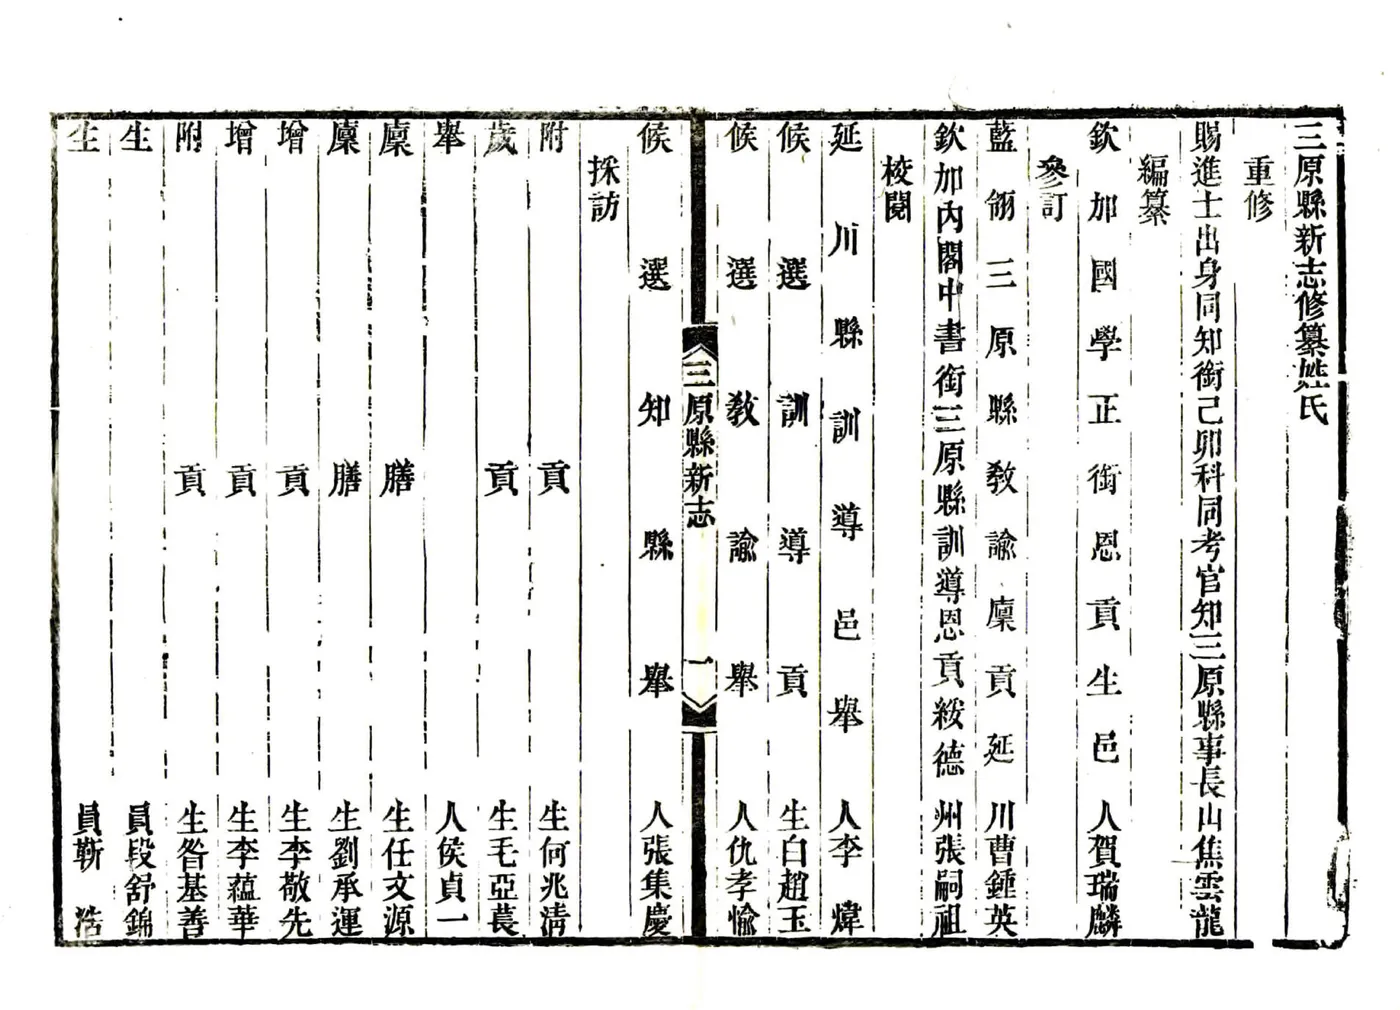 三原縣新志修纂姓氏
重修
賜進士出身同知銜己卯科同考官知三原縣事長山焦雲龍
編纂
欽加國學正銜恩貢生邑人賀瑞麟
參訂
藍翎三原縣教諭廩貢延川曹鍾英
欽加內閣中書銜三原縣訓導恩貢綏德州張嗣祖
校閱
延川縣訓導邑舉人李煒
候選訓導貢生白趙玉
候選教諭舉人仇孝愉
三原縣新志
一
候選知縣舉人張集慶
採訪
附貢生何兆清
歲貢生毛亞萇
舉人侯貞一
廩膳生任文源
廩膳生劉承運
增貢生李敬先
增貢生李蘊華
附貢生昝基善
生員段舒錦
生員靳浩